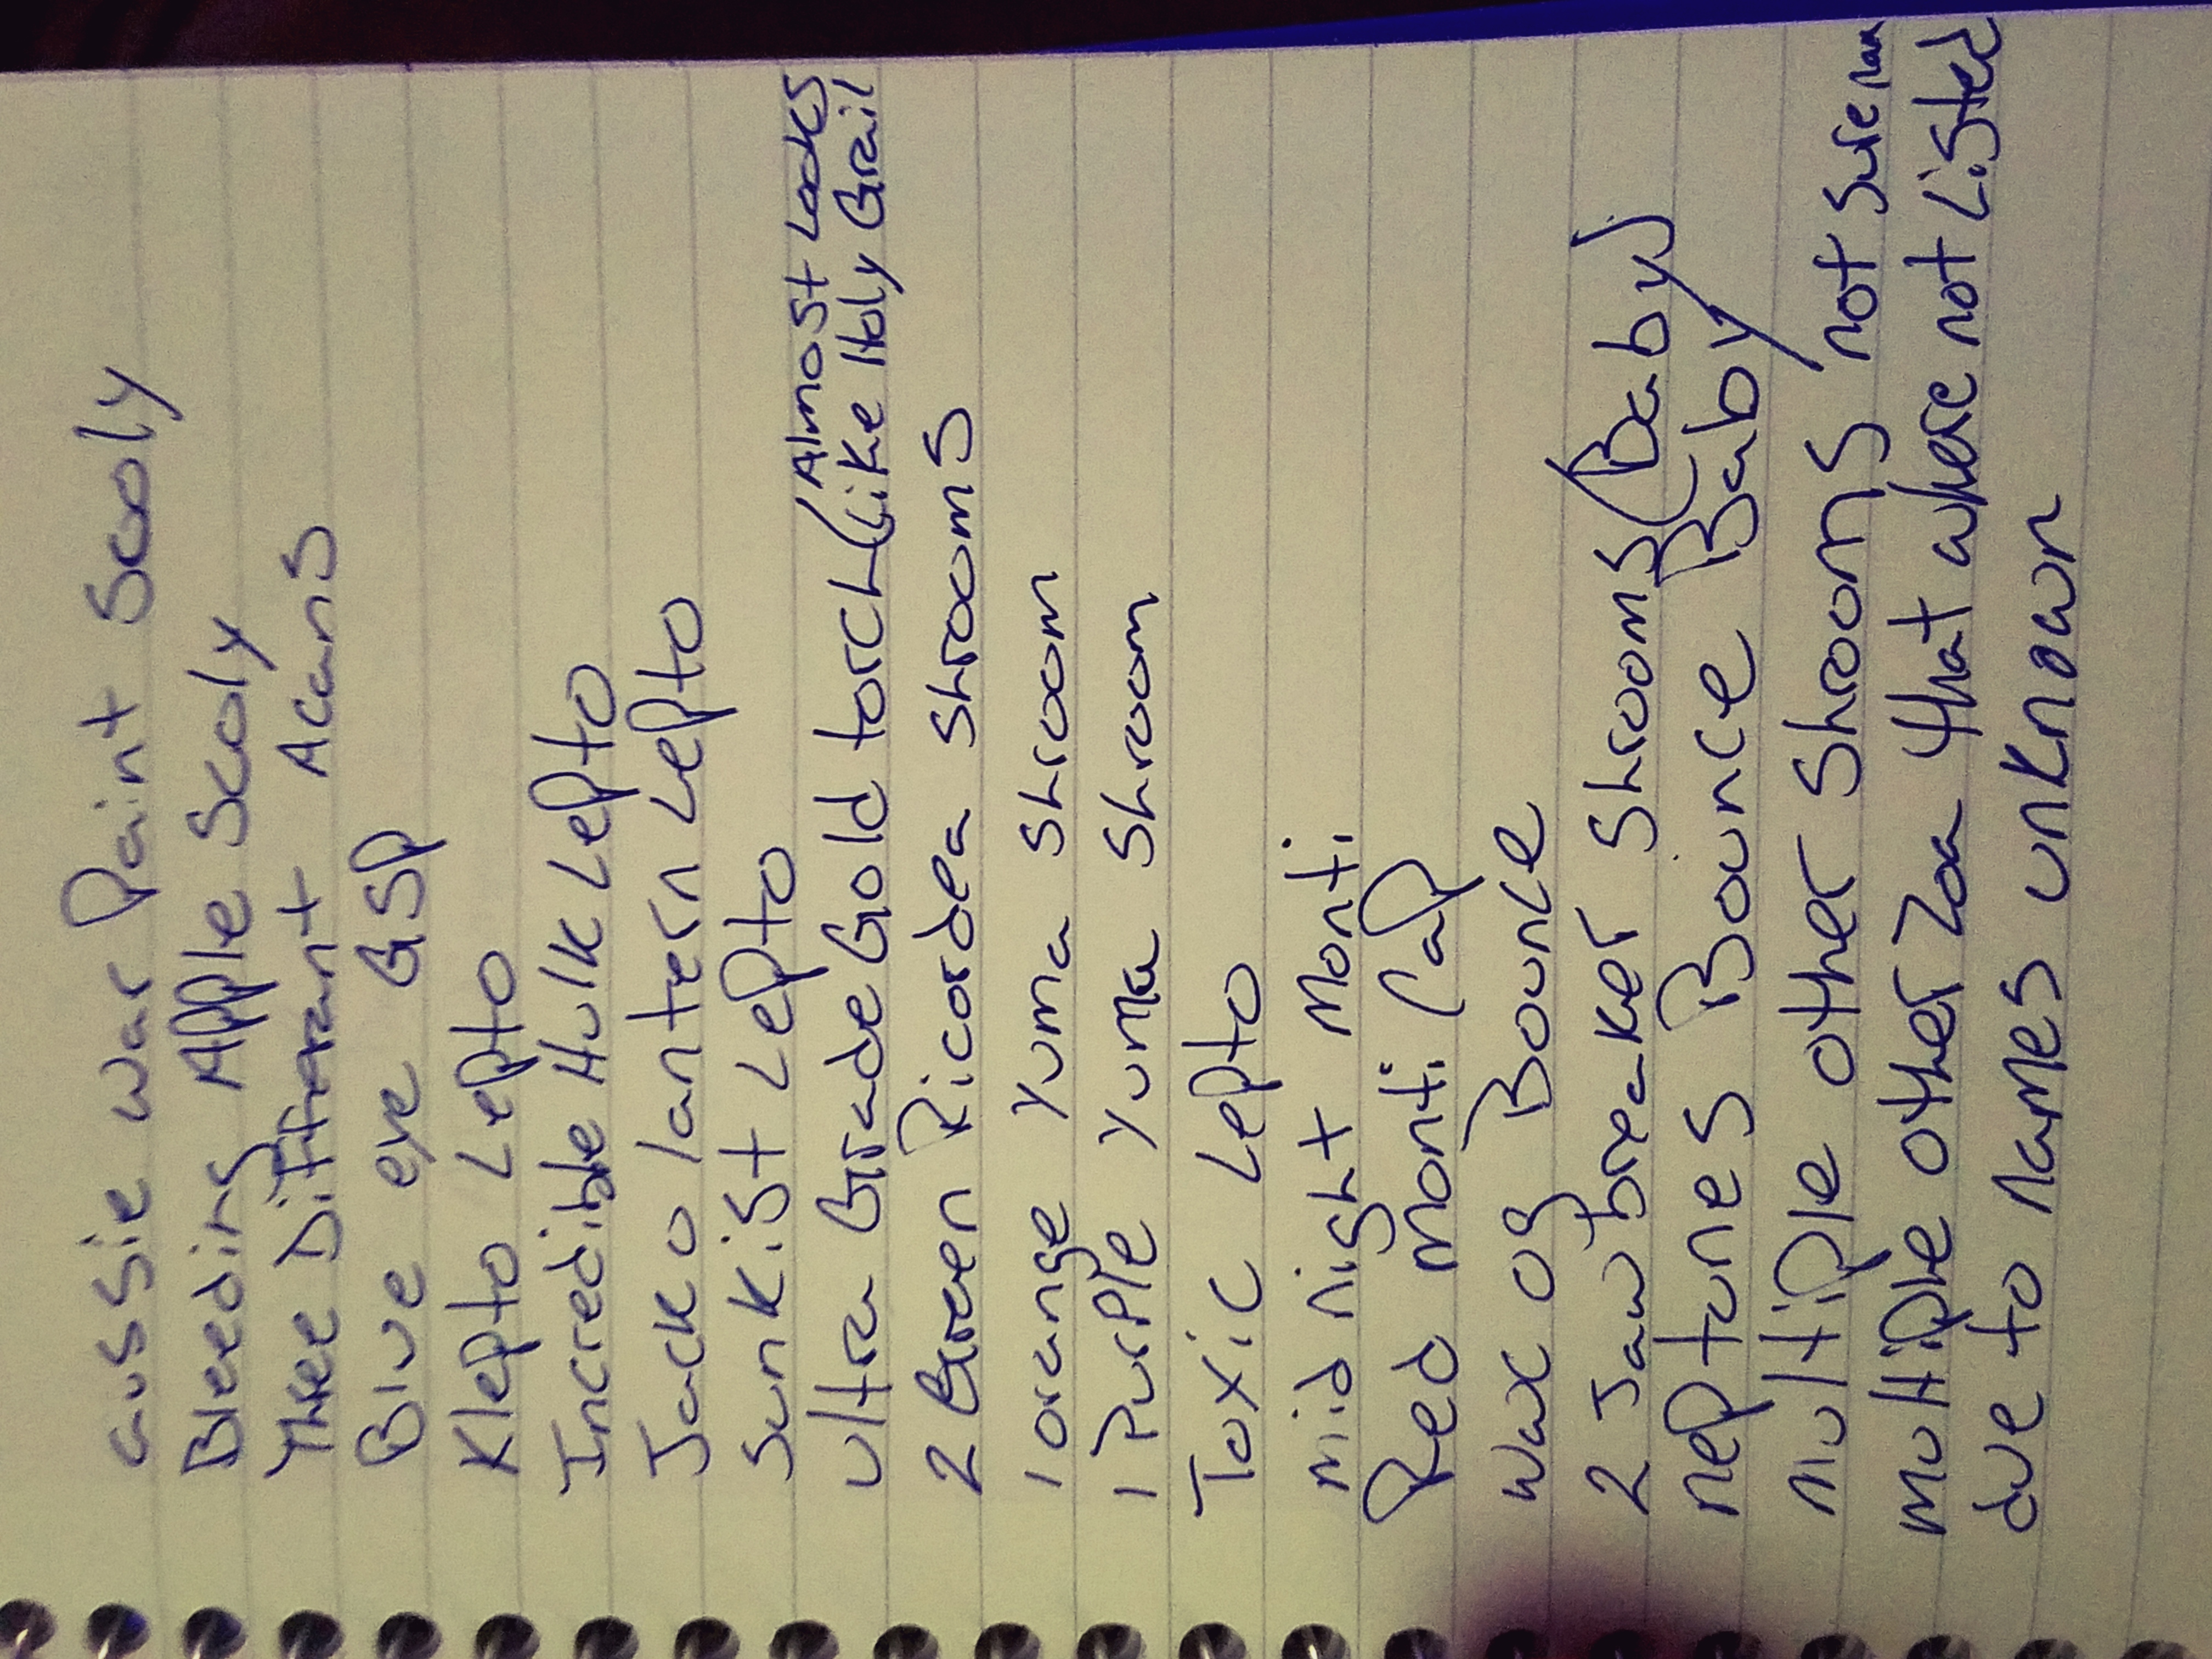 aussie war Paint Scoly
Bleeding Apple Scoly
Three Differant Acans
Blue eye GSP
Klepto Lepto
Incredible Hulk Lepto
Jack o lantern Lepto
Sunkist Lepto
Ultra Grade Gold torch (Almost Looks Like Holy Grail
2 Green Ricordea shrooms
1 orange Yuma shroom
1 Purple Yuma shroom
Toxic Lepto
mid night monti
Red monti Cap
wax OG Bounce
2 Jawbreaker shrooms (Baby)
neptunes Bounce Baby
multiple other shrooms not sure
multiple other Zoa that where not Listed
due to names unknown